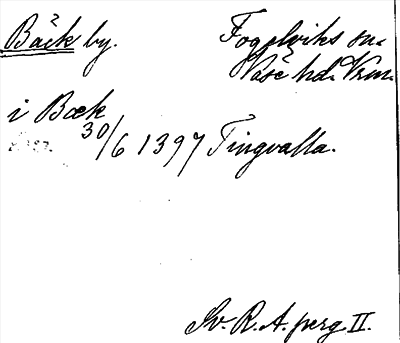 Bäck by. Fogelviks sn.
Väse hd. Vrm.
i Bæk
30/6 1397 Tingvalla.
Sv. R. A. perg. II.